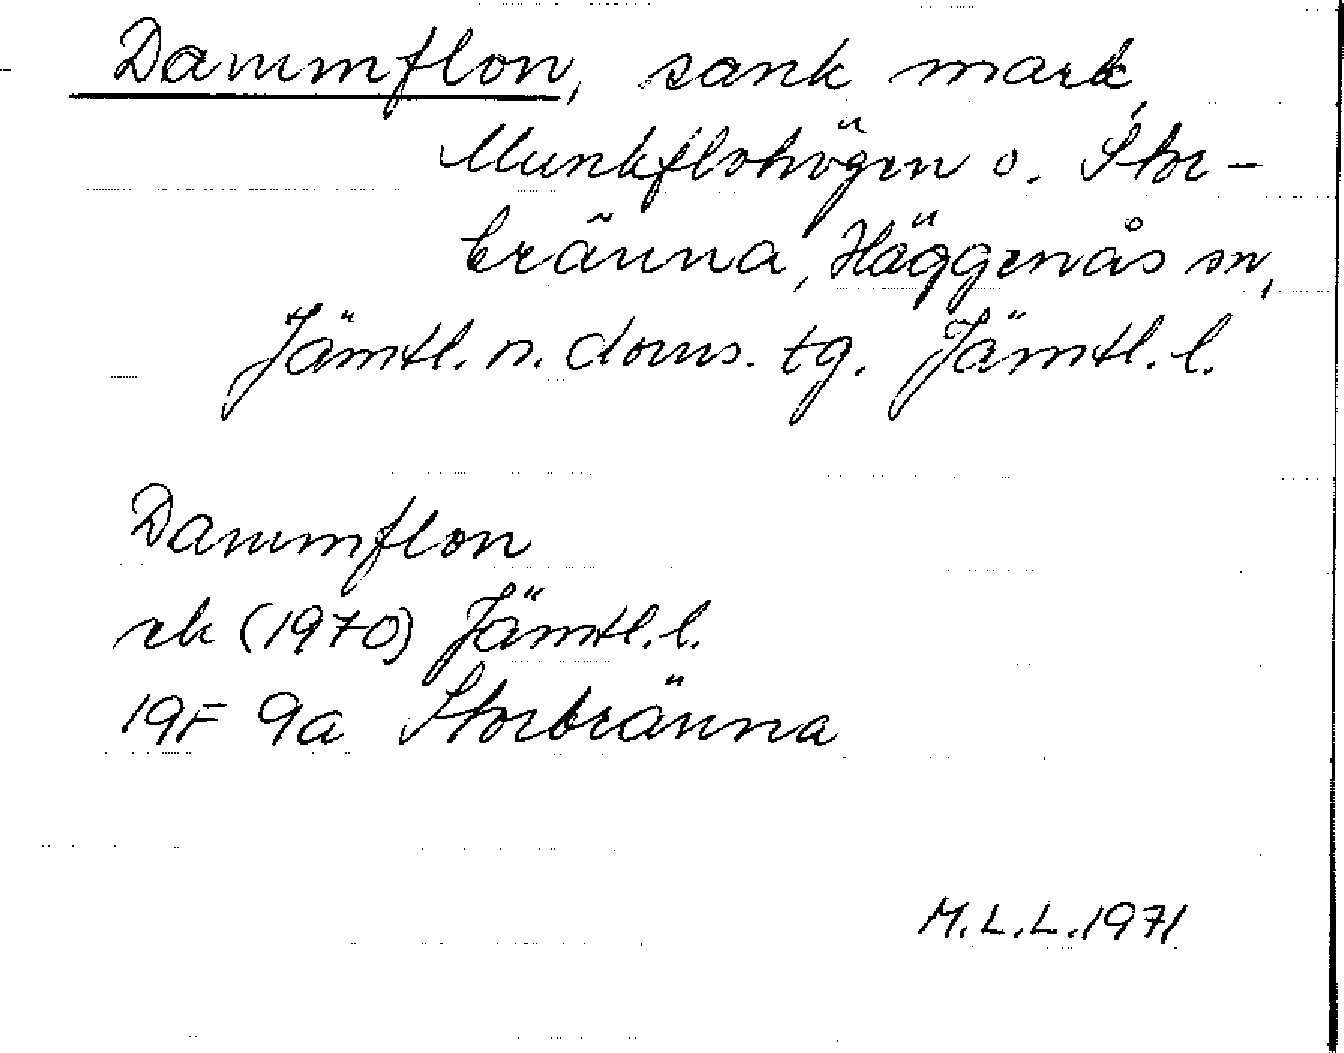 Dammflon, sank mark,
Munkflohögen o. Stor-
bränna, Häggenås sn,
Jämtl. n. doms. tg. Jämtl. l.
Dammflon
rk (1970) Jämtl. l.
19F 9a Storbränna
M.L.L. 1971